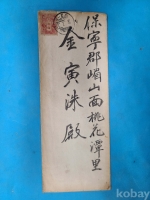 保寧郡嵋山面桃花潭里
金寅洙殿
kobay